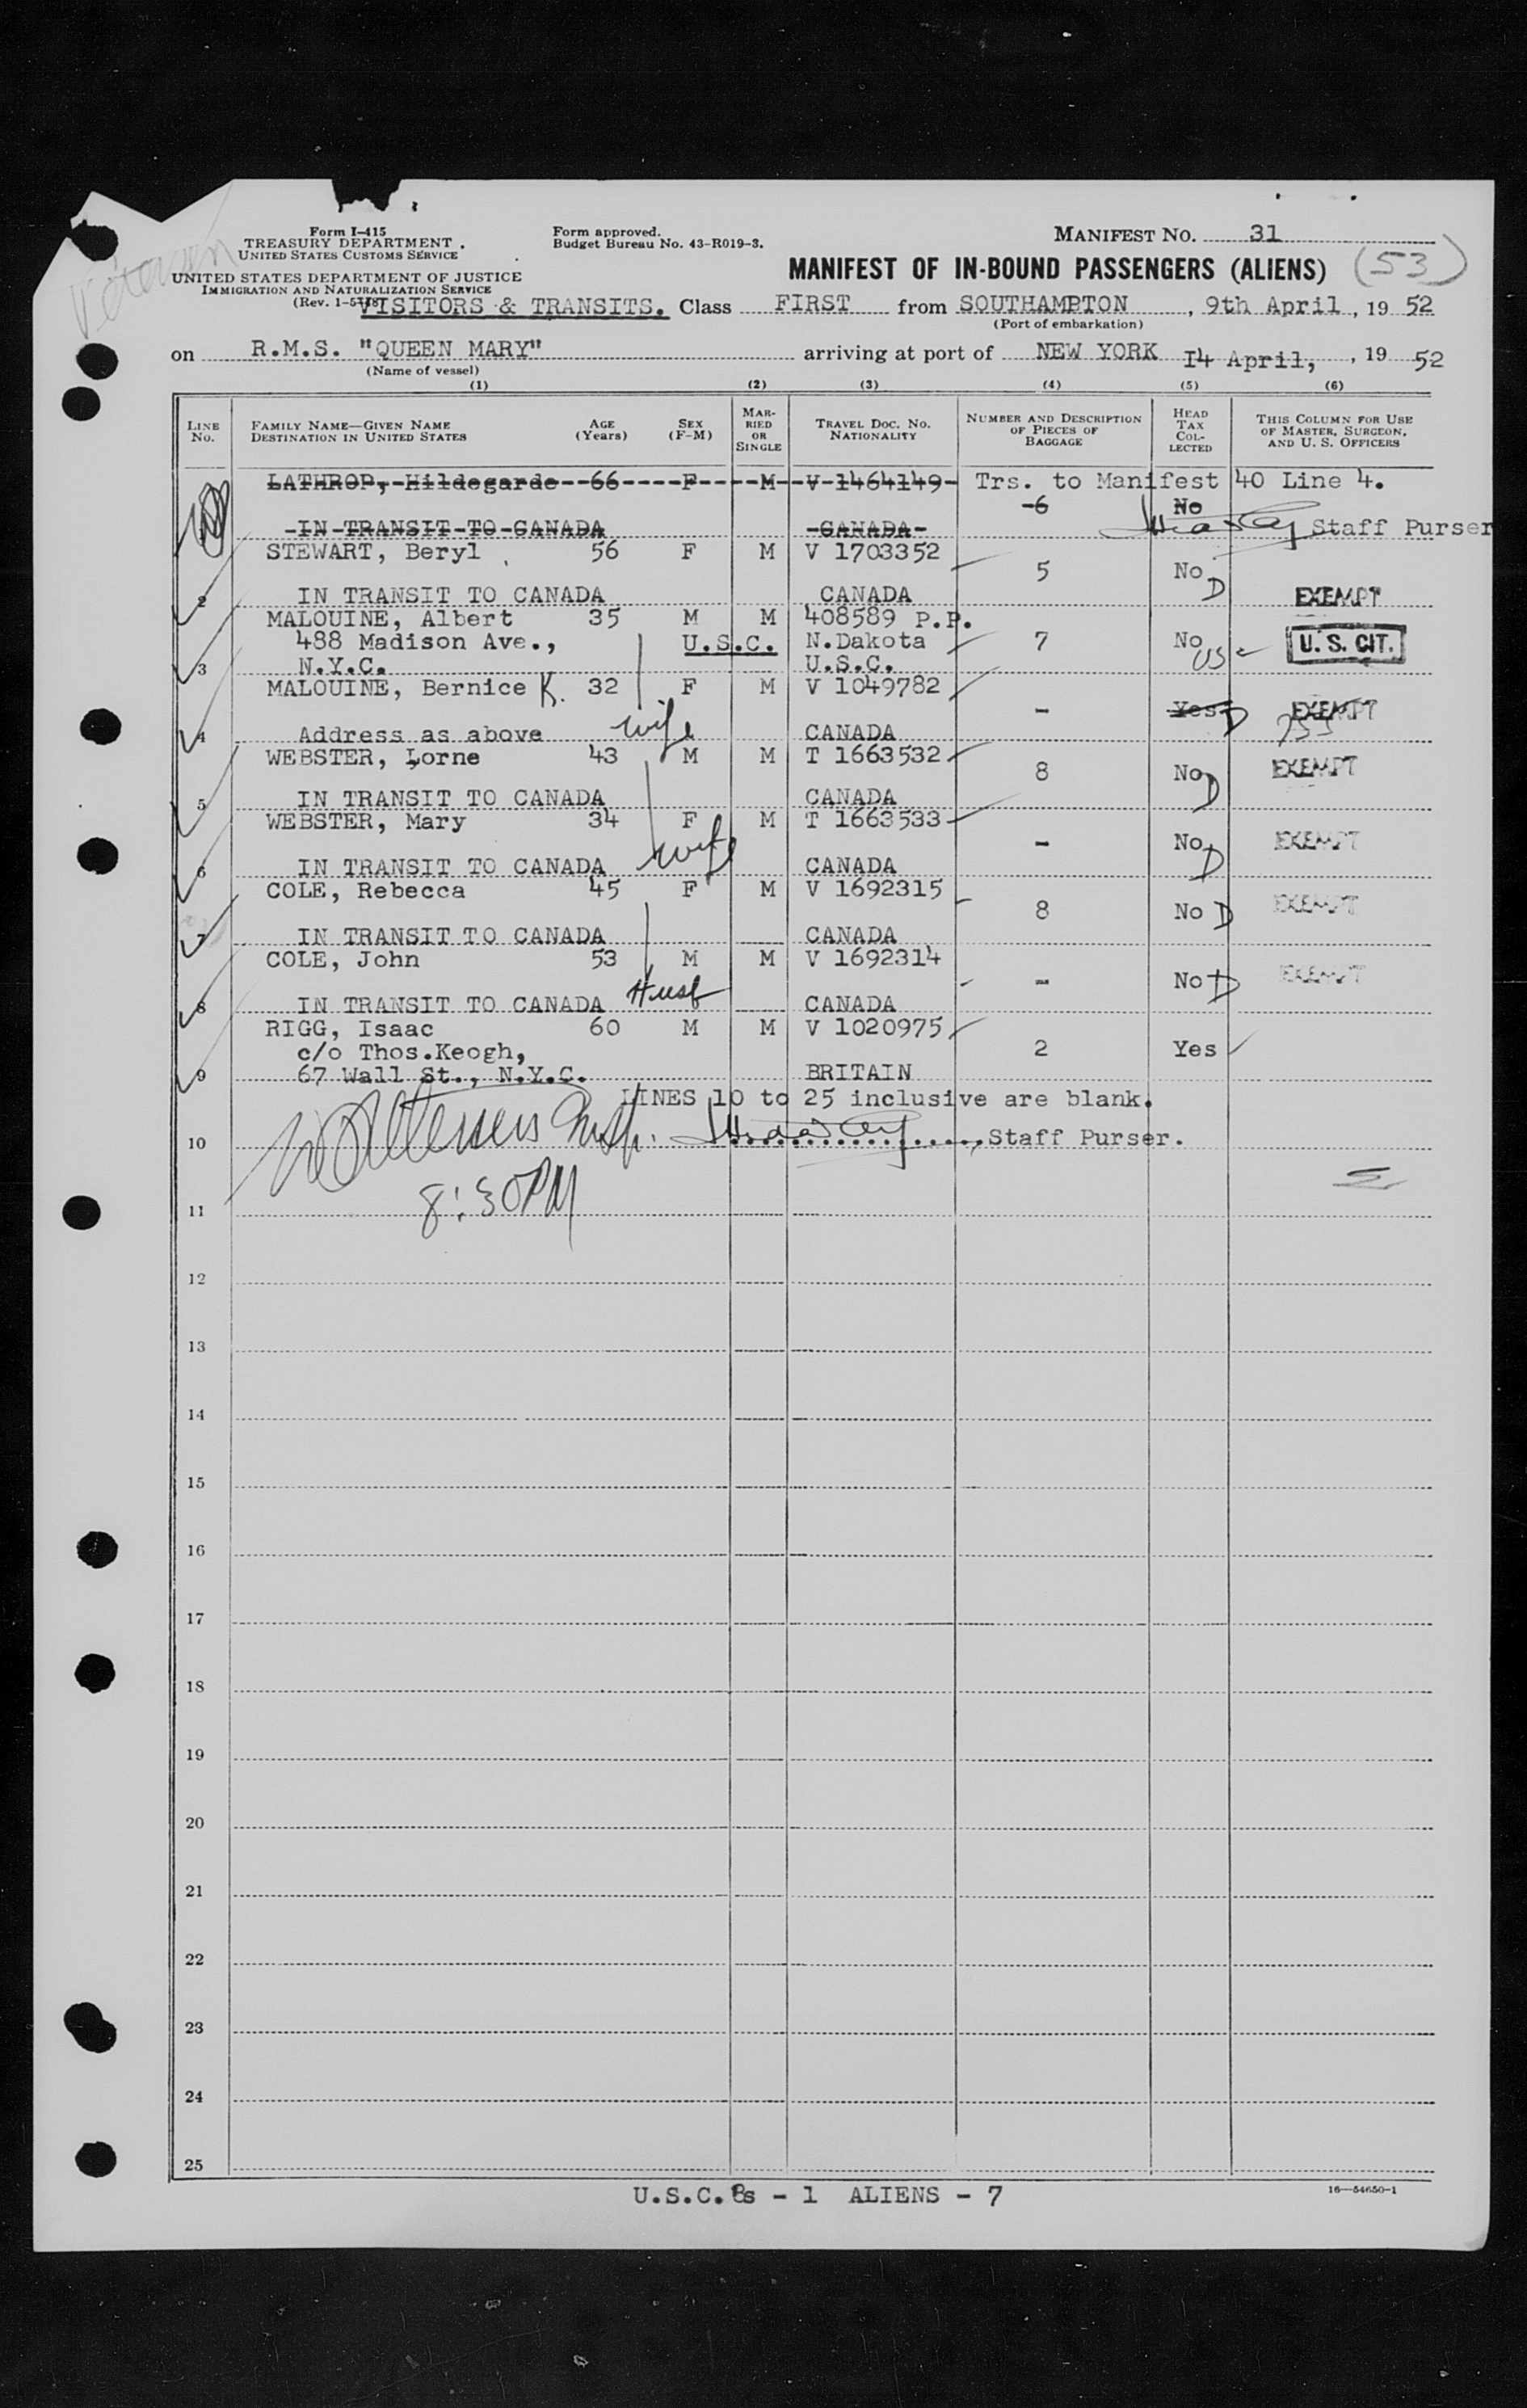 Form I-415
TREASURY DEPARTMENT
UNITED STATES CUSTOMS SERVICE
UNITED STATES DEPARTMENT OF JUSTICE
IMMIGRATION AND NATURALIZATION SERVICE
Form approved.
Budget Bureau No. 43-R019-3.
MANIFEST NO. 31
MANIFEST OF IN-BOUND PASSENGERS (ALIENS) (53)
VISITORS & TRANSITS. Class FIRST from SOUTHAMPTON, 9th April, 19 52
(Port of embarkation)
on R.M.S. "QUEEN MARY" arriving at port of NEW YORK 14 April, , 19 52
(Name of vessel)
(1) (2) (3) (4) (5) (6)
LINE No. FAMILY NAME—GIVEN NAME DESTINATION IN UNITED STATES AGE (Years) SEX (F-M) MARRIED OR SINGLE TRAVEL DOC. NO. NATIONALITY NUMBER AND DESCRIPTION OF PIECES OF BAGGAGE HEAD TAX COLLECTED THIS COLUMN FOR USE OF MASTER, SURGEON, AND U. S. OFFICERS
LATHROP, Hildegarde 66 F M V 1464149 Trs. to Manifest 40 Line 4.
6 No
IN TRANSIT TO CANADA CANADA Staff Purser
STEWART, Beryl 56 F M V 1703352
5 No D
2 IN TRANSIT TO CANADA CANADA EXEMPT
MALOUINE, Albert 35 M M 408589 P.P.
488 Madison Ave., U.S.C. N.Dakota 7 No US U. S. CIT.
3 N.Y.C. U.S.C.
MALOUINE, Bernice K. 32 F M V 1049782
- Yes D EXEMPT
4 Address as above wife CANADA
WEBSTER, Lorne 43 M M T 1663532
8 No D EXEMPT
5 IN TRANSIT TO CANADA CANADA
WEBSTER, Mary 34 F M T 1663533
- No D EXEMPT
6 IN TRANSIT TO CANADA wife CANADA
COLE, Rebecca 45 F M V 1692315
8 No D EXEMPT
7 IN TRANSIT TO CANADA CANADA
COLE, John 53 M M V 1692314
- No D EXEMPT
8 IN TRANSIT TO CANADA Husb CANADA
RIGG, Isaac 60 M M V 1020975
c/o Thos.Keogh, 2 Yes
9 67 Wall St., N.Y.C. BRITAIN
LINES 10 to 25 inclusive are blank.
10 Insp. Staff Purser.
8:30PM
11
12
13
14
15
16
17
18
19
20
21
22
23
24
25
U.S.C.s - 1 ALIENS - 7
16—54650-1